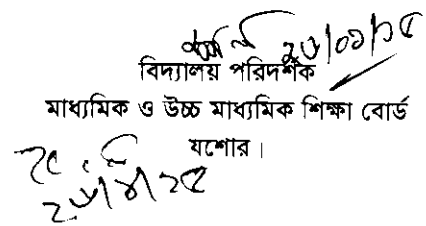 ২৬/০১/১৫
বিদ্যালয় পরিদর্শক
মাধ্যমিক ও উচ্চ মাধ্যমিক শিক্ষা বোর্ড
যশোর।